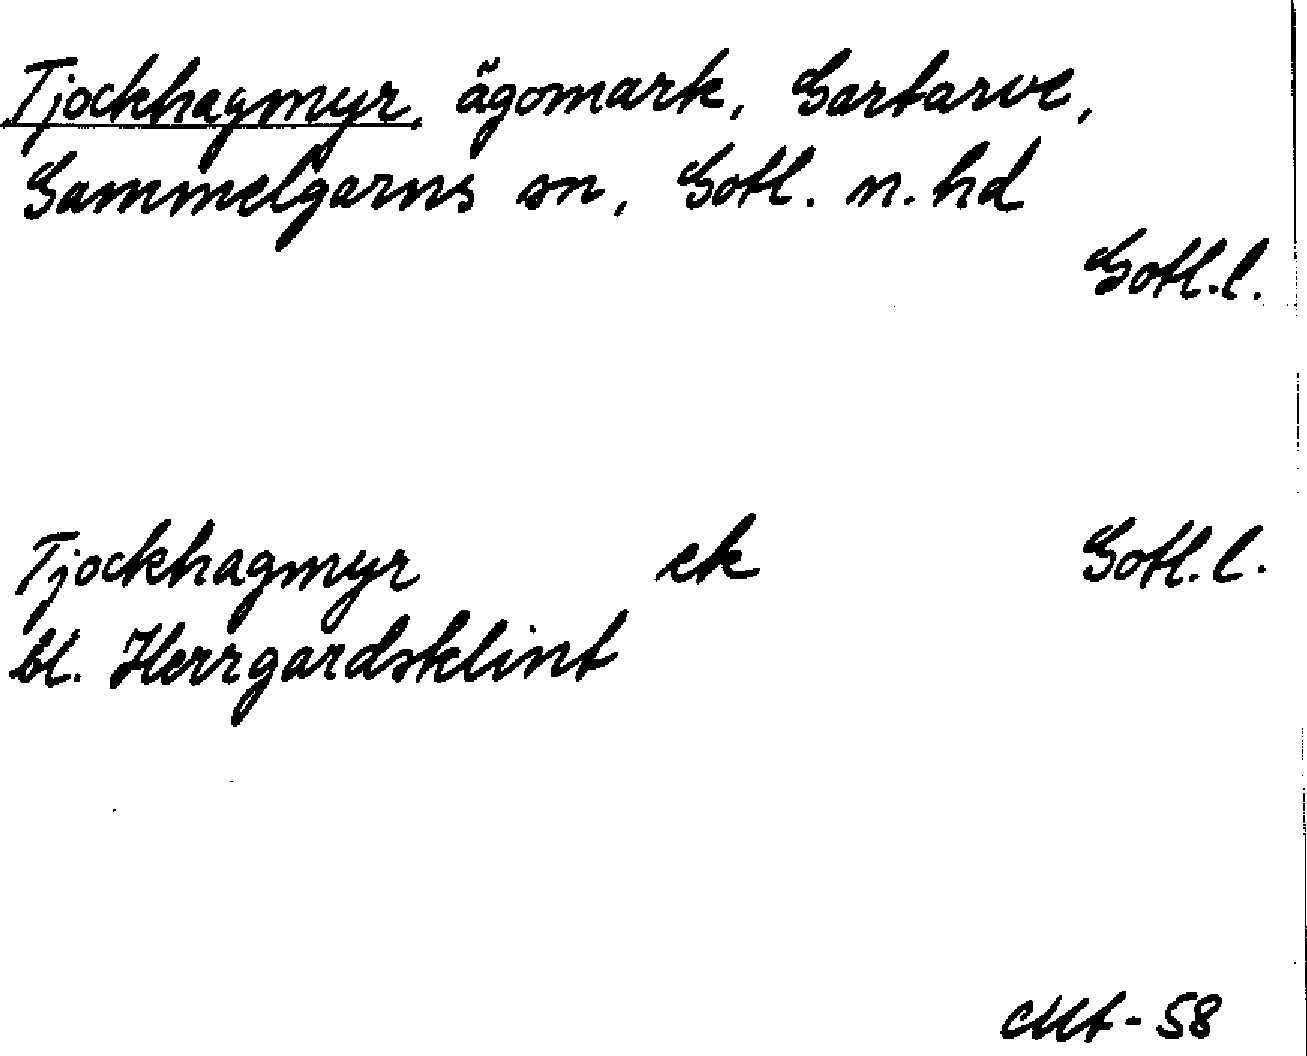 Tjockhagmyr, ägomark, Gartarve,
Gammelgarns sn, Gotl. n. hd
Gotl. l.
Tjockhagmyr ek Gotl. l.
bl. Herrgardsklint
-58